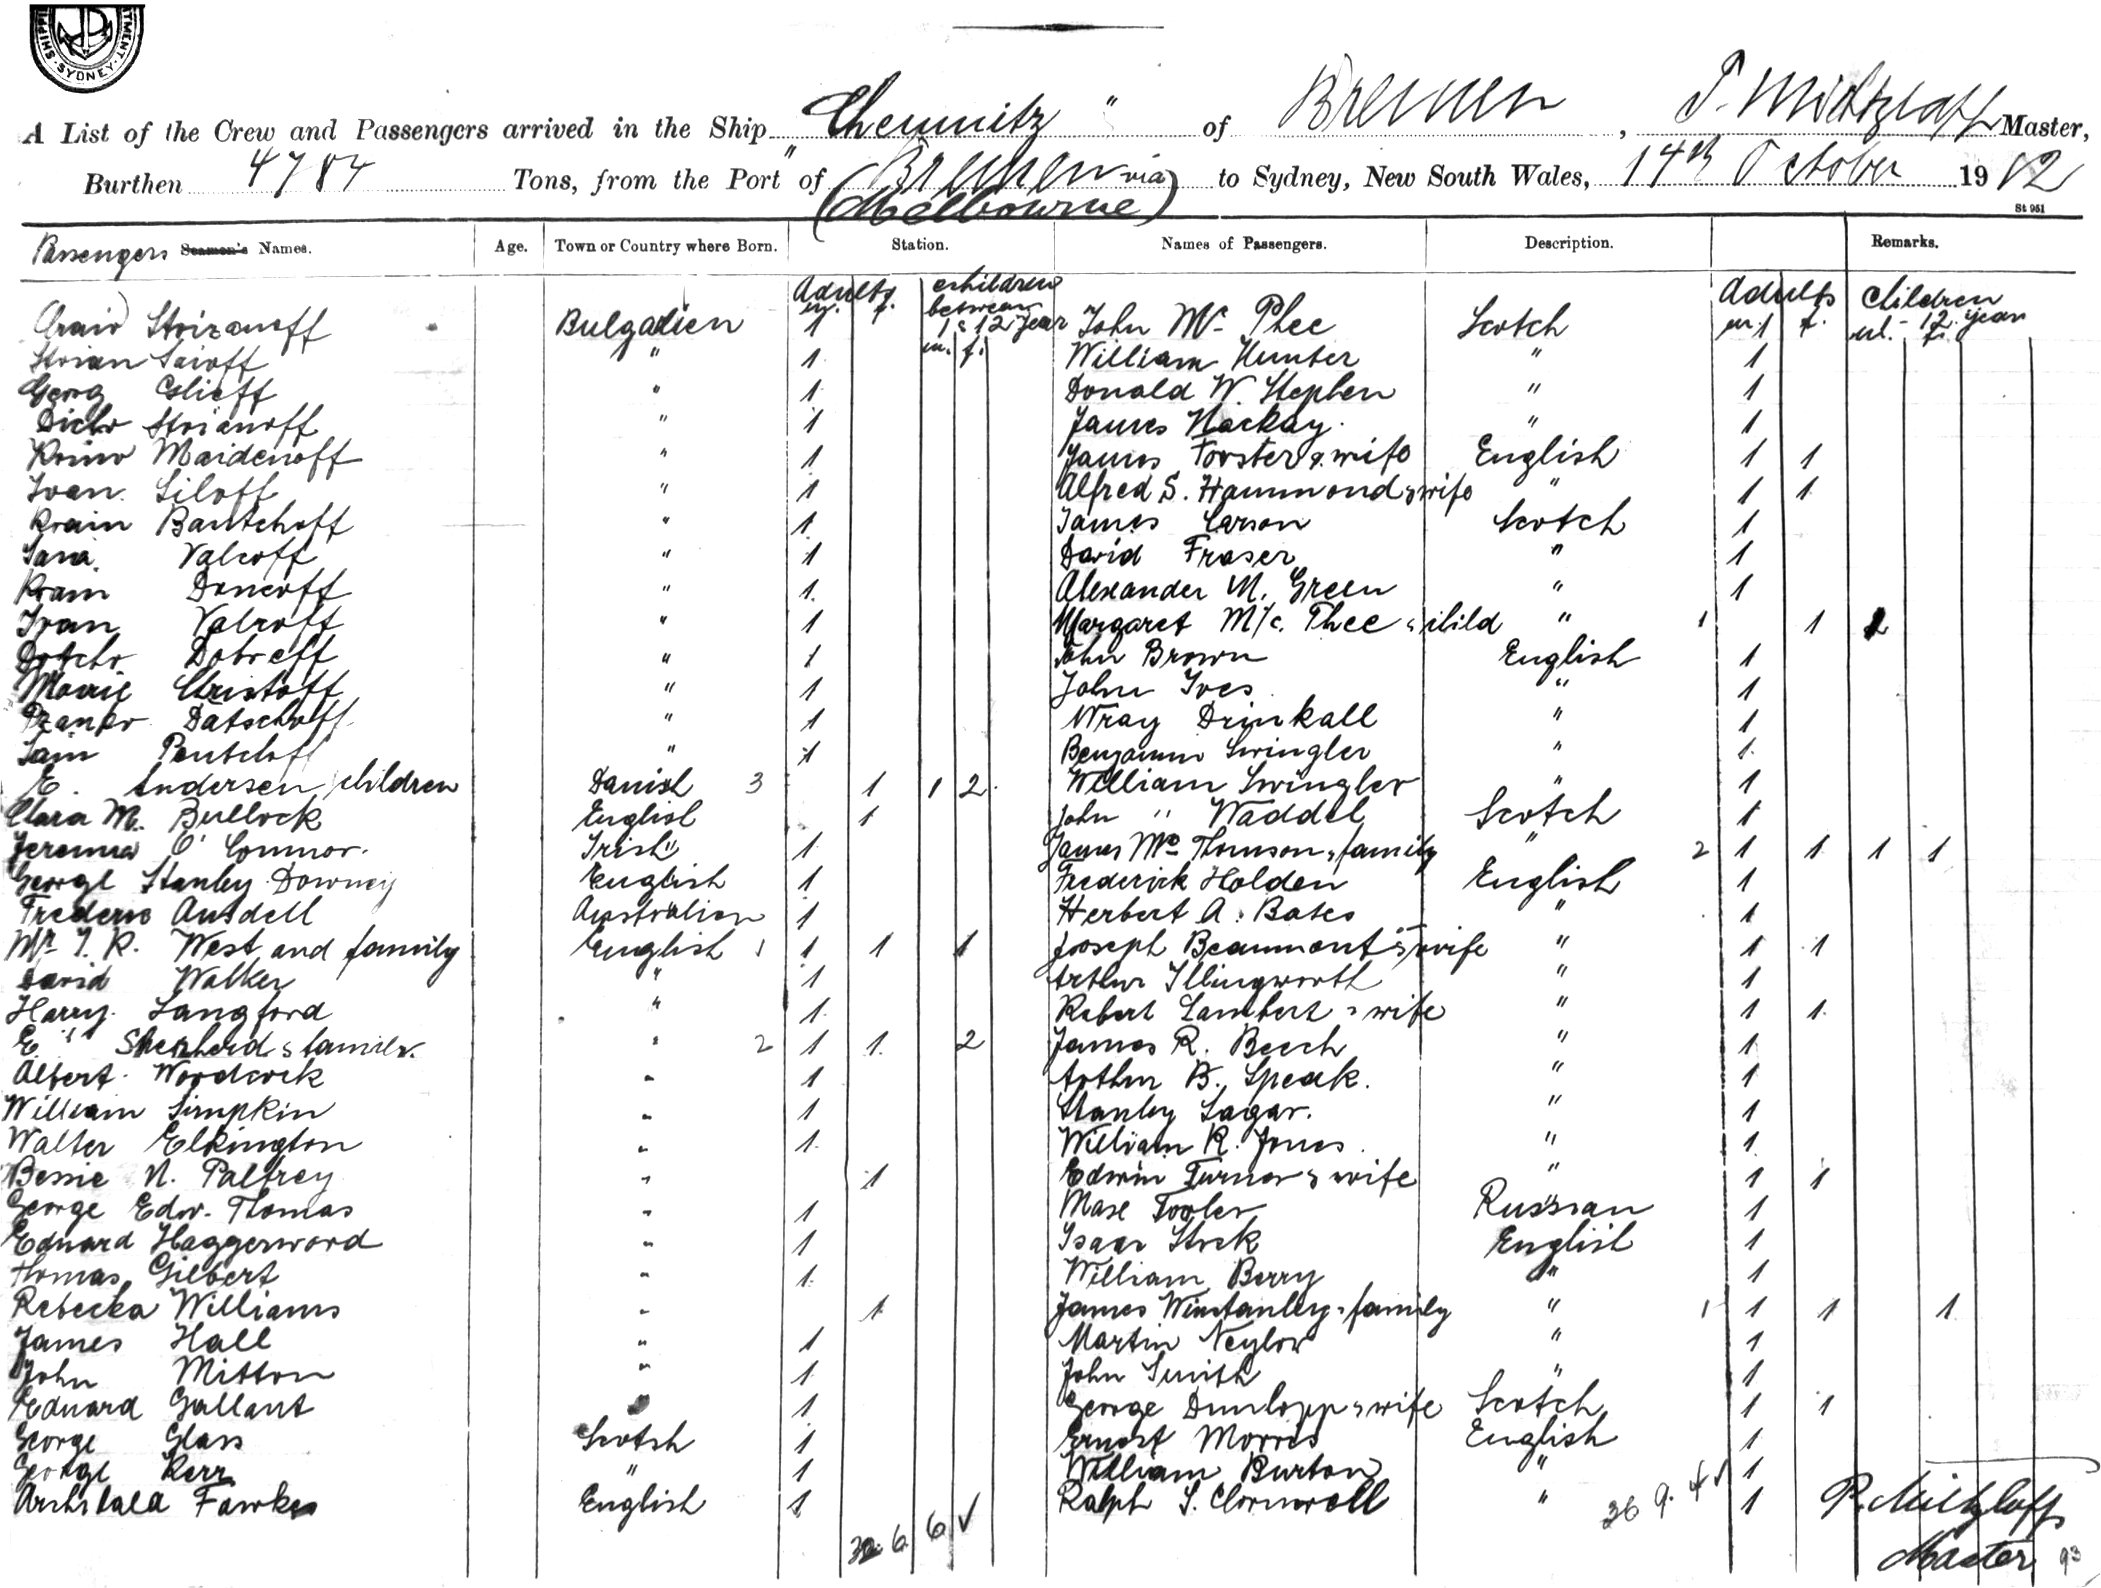 SHIP MENT
SYDNEY
A List of the Crew and Passengers arrived in the Ship "Chemnitz" of Bremen, Master,
Burthen 4784 Tons, from the Port of Bremen via to Sydney, New South Wales, 14th October 1912
(Melbourne)
St 951
Passengers Seamen's Names. Age. Town or Country where Born. Station. Names of Passengers. Description. Remarks.
Adults children Adults children
m. f. between
1 & 12 year m. f. 1 - 12 year
m. f. m. f.
Stoizanoff Bulgarien 1 John Mc Phee Scotch 1
Stoian " 1 William Hunter " 1
Georg Glieff " 1 Donald W. Stephen " 1
Stoianoff " 1 James Mackay. " 1
Maidenoff " 1 James Forster & wife English 1 1
Ivan Siloff " 1 Alfred S. Hammond & wife " 1 1
Bautchoff " 1 James Carson Scotch 1
Valcoff " 1 David Fraser " 1
Doncoff " 1 Alexander M. Green " 1
Ivan Valcoff " 1 Margaret M/c. Phee & child " 1 1
Dobreff " 1 John Brown English 1
Christoff " 1 John Ives " 1
Datschoff " 1 Wray Drinkall " 1
Pentchoff " 1 Benjamin Swingler " 1
E. Andersen children Danish 3 1 1 2 William Swingler " 1
Clara M. Bullock English 1 John " Waddel Scotch 1
Jeremia O'Connor. Irish 1 James Mc Thomson & family " 2 1 1 1 1
George Stanley Downey English 1 Frederick Holden English 1
Frederic Ansdell Australian 1 Herbert A. Bates " 1
Mr. West and family English 1 1 1 1 Joseph Beaumont & wife " 1 1
David Walker " 1 Arthur Illingworth " 1
Harry Langford " 1 Robert Lambert & wife " 1 1
E. Shepherd & family. " 2 1 1 2 James R. Beech " 1
Albert Woodcock " 1 Arthur B. Speak. " 1
William Simpkin " 1 Stanley Sagar. " 1
Walter Elkington " 1 William R. Jones " 1
Bessie N. Palfrey " 1 Edwin Turner & wife " 1 1
George Edw. Thomas " 1 Russian 1
Eduard Haggerword " 1 Isaac Stock English 1
Thomas Gilbert " 1 William Berry " 1
Rebecka Williams " 1 James Winstanley & family " 1 1 1 1
James Hall " 1 Martin Neylor " 1
John Mitton " 1 John Smith " 1
Eduard Gallant " 1 George Dunlopp & wife Scotch 1 1
George Glass Scotch 1 Ernest Morris English 1
George Kerr " 1 William Burton " 1
Archibald Fawkes English 1 Ralph S. Cornwell " 1
6 6 √ 36 9. 4 √
Master 93